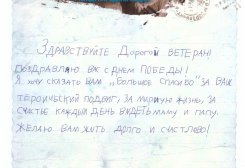 Здравствуйте Дорогой ветеран!
Поздравляю вас с днем победы!
Я хочу сказать вам "Большое спасибо" за ваш
героический подвиг, за мирную жизнь, за
счастье каждый день видеть маму и папу.
Желаю вам жить долго и счастлево!